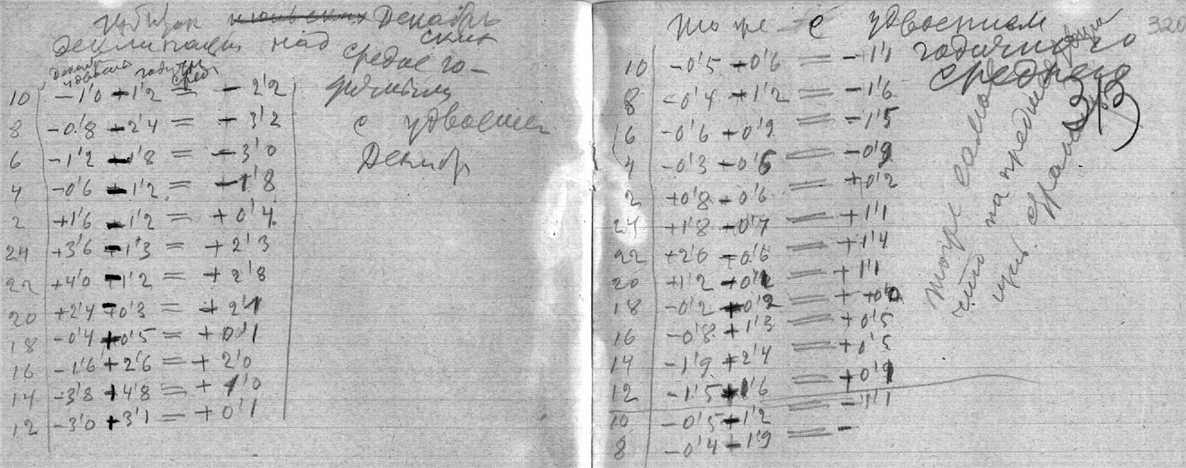 Избыток июньских Декабрь
деклинации над ских
средне го-
дичным
с удвоением
Декабр
годичн
сред
10 -1'0 +1'2 = -2'2
8 -0'8 +2'4 = -3'2
6 -1'2 -1'8 = -3'0
4 -0'6 -1'2 = -1'8
2 +1'6 -1'2 = +0'4
24 +3'6 -1'3 = +2'3
22 +4'0 -1'2 = +2'8
20 +2'4 -0'3 = +2'1
18 -0'4 +0'5 = +0'1
16 -1'6 +2'6 = +2'0
14 -3'8 +4'8 = +1'0
12 -3'0 +3'1 = +0'1
То же с удвоением
годичного
среднего
320
313
10 -0'5 -0'6 = -1'1
8 -0'4 +1'2 = -1'6
6 -0'6 +0'9 = -1'5
4 -0'3 -0'6 = -0'9
2 +0'8 -0'6 = +0'2
24 +1'8 -0'7 = +1'1
22 +2'0 -0'6 = +1'4
20 +1'2 -0'1 = +1'1
18 -0'2 +0'2 = +0'0
16 -0'8 +1'3 = +0'5
14 -1'9 +2'4 = +0'5
12 -1'5 +1'6 = +0'1
10 -0'5 +1'2 = -1'1
8 -0'4 -1'9 = -
тоже самое
что на предыду
щей странице